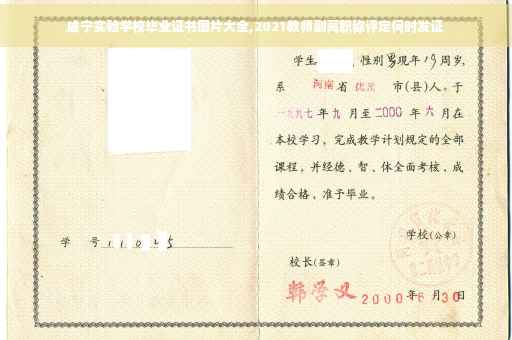 咸宁实验学校毕业证书图片大全,2021教师副高职称评定何时发证
学生 ,性别男现年19周岁,
系 河南省 市(县)人。于
一九九七年九月至二000年六月在
本校学习,完成教学计划规定的全部
课程,并经德、智、体全面考核,成
绩合格,准予毕业。
学校(公章)
学 号
校长(签章)
韩学义 2000年6月30日